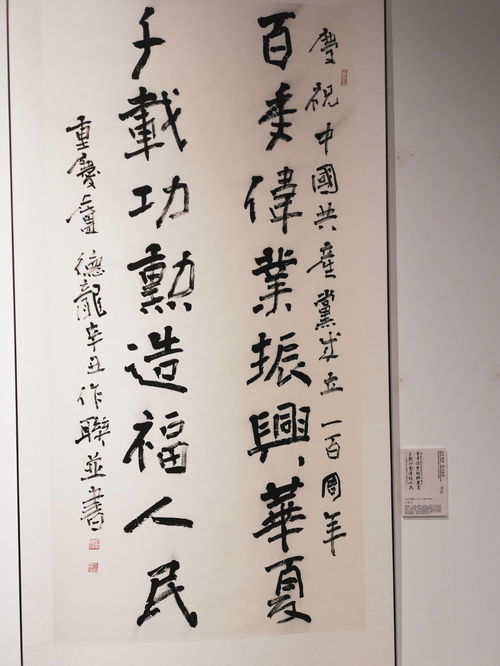 慶祝中國共產黨成立一百周年
百年偉業振興華夏
千載功勳造福人民
重慶盧德龍辛丑作聯並書